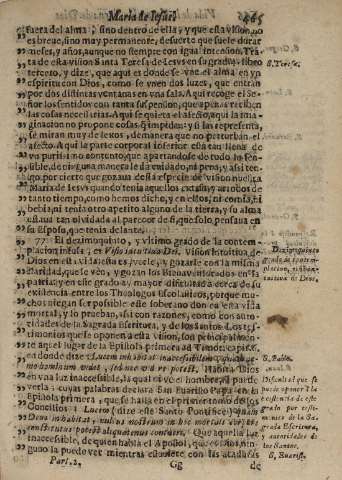 Maria de Iesus. 465
fuera del alma, sino dentro de ella, y que esta vision, no
es breue, sino muy permanente, de suerte que suele durar
meses, y años, aunque no siempre con igual intension. Tra
ta de esta vision Santa Teresa de Iesus en su
tercero, y dize, que aqui es donde se vne el alma en
espiritu con Dios, como se vnen dos luzes, que entran
por dos distintas ventanas en vna sala. Aqui recoge el Se-
ñor los sentidos con tanta suspension, que apenas reciben
las cosas necessarias. Aqui se quieta el afecto, aqui la ima
ginacion no propone cosas, y si las representa,
se miran muy de lexos, de manera que no perturban el
afecto. Aqui la parte corporal inferior està tan llena de
vn purissimo contento, que apartandose de todo lo sen-
sible, de ninguna manera le dà cuidado, ni pena, y assi ten
go por cierto que gozaua desta especie de vision nuestra
Maria de Iesus quando tenia aquellos extasis, y arrobos de
tanto tiempo, como hemos dicho, y en ellos, ni comia, ni
bebia, ni tenia otro apetito alguno de la tierra, y su alma
estaua tan olvidada al parecer de si, que solo pensaua en
su Esposo, que tenia delante.
77. El dezimoquinto, y vltimo grado de la contem-
placion infusa, es Vision intuitiua Dei. Vision intuitiua de
Dios en esta vida mortal es, verle, y gozarle con la misma
claridad, que le vèn, y gozan los Bienauenturados en la
patria; y en este grado ay mayor dificultad acerca de su
existencia entre los Theologos Escolasticos, porque mu-
chos niegan ser possible este soberano don en esta vida
mortal, y lo prueban, assi con razones, como con auto-
ridades de la Sagrada Escritura, y de los Santos. Los tes-
timonios que se oponen a esta vision, son principalmen-
te aquel lugar de la Epistola primera ad Timot. cap. 6.
en donde dize: Lucem inhabitat inaccessibilem, quem nul-
lus hominum vidit, sed nec videre potest. Habita Dios
en vna luz inaccessible, la qual no vè el hombre, ni puede
verla; cuyas palabras declara San Fuurillo Papa en la
Epistola primera, que se halla en el primer tomo de los
Concilios: Lucem (dize este Santo Pontifice)
Deus inhabitat, nullus nostrum in hac mortali vita
constitutus poterit aliquatenus contueri. Que aquella luz
inaccessible, de quien habla el Apostol, que es Dios, nin-
guno la puede ver mientras estuuiere con las ataduras
Part. 2. Gg de
S. Teresa.
Dezimoquinto
grado de contem-
placion, es vision
intuitiua de Dios.
S. Pablo.
Dificultad que se
puede oponer à la
existencia de este
grado por testi-
monios de la Sa-
grada Escritura,
y autoridades de
los Santos.